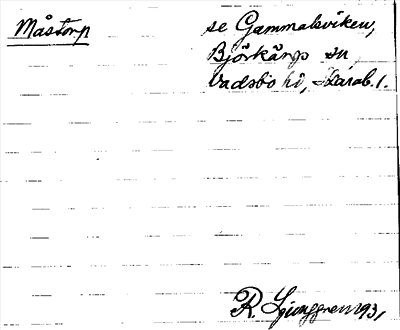 Måstorp
se Gammalsviken,
Björkäng sn
Vadsbo hd, Skarab. l.
R. Ljunggren 1931